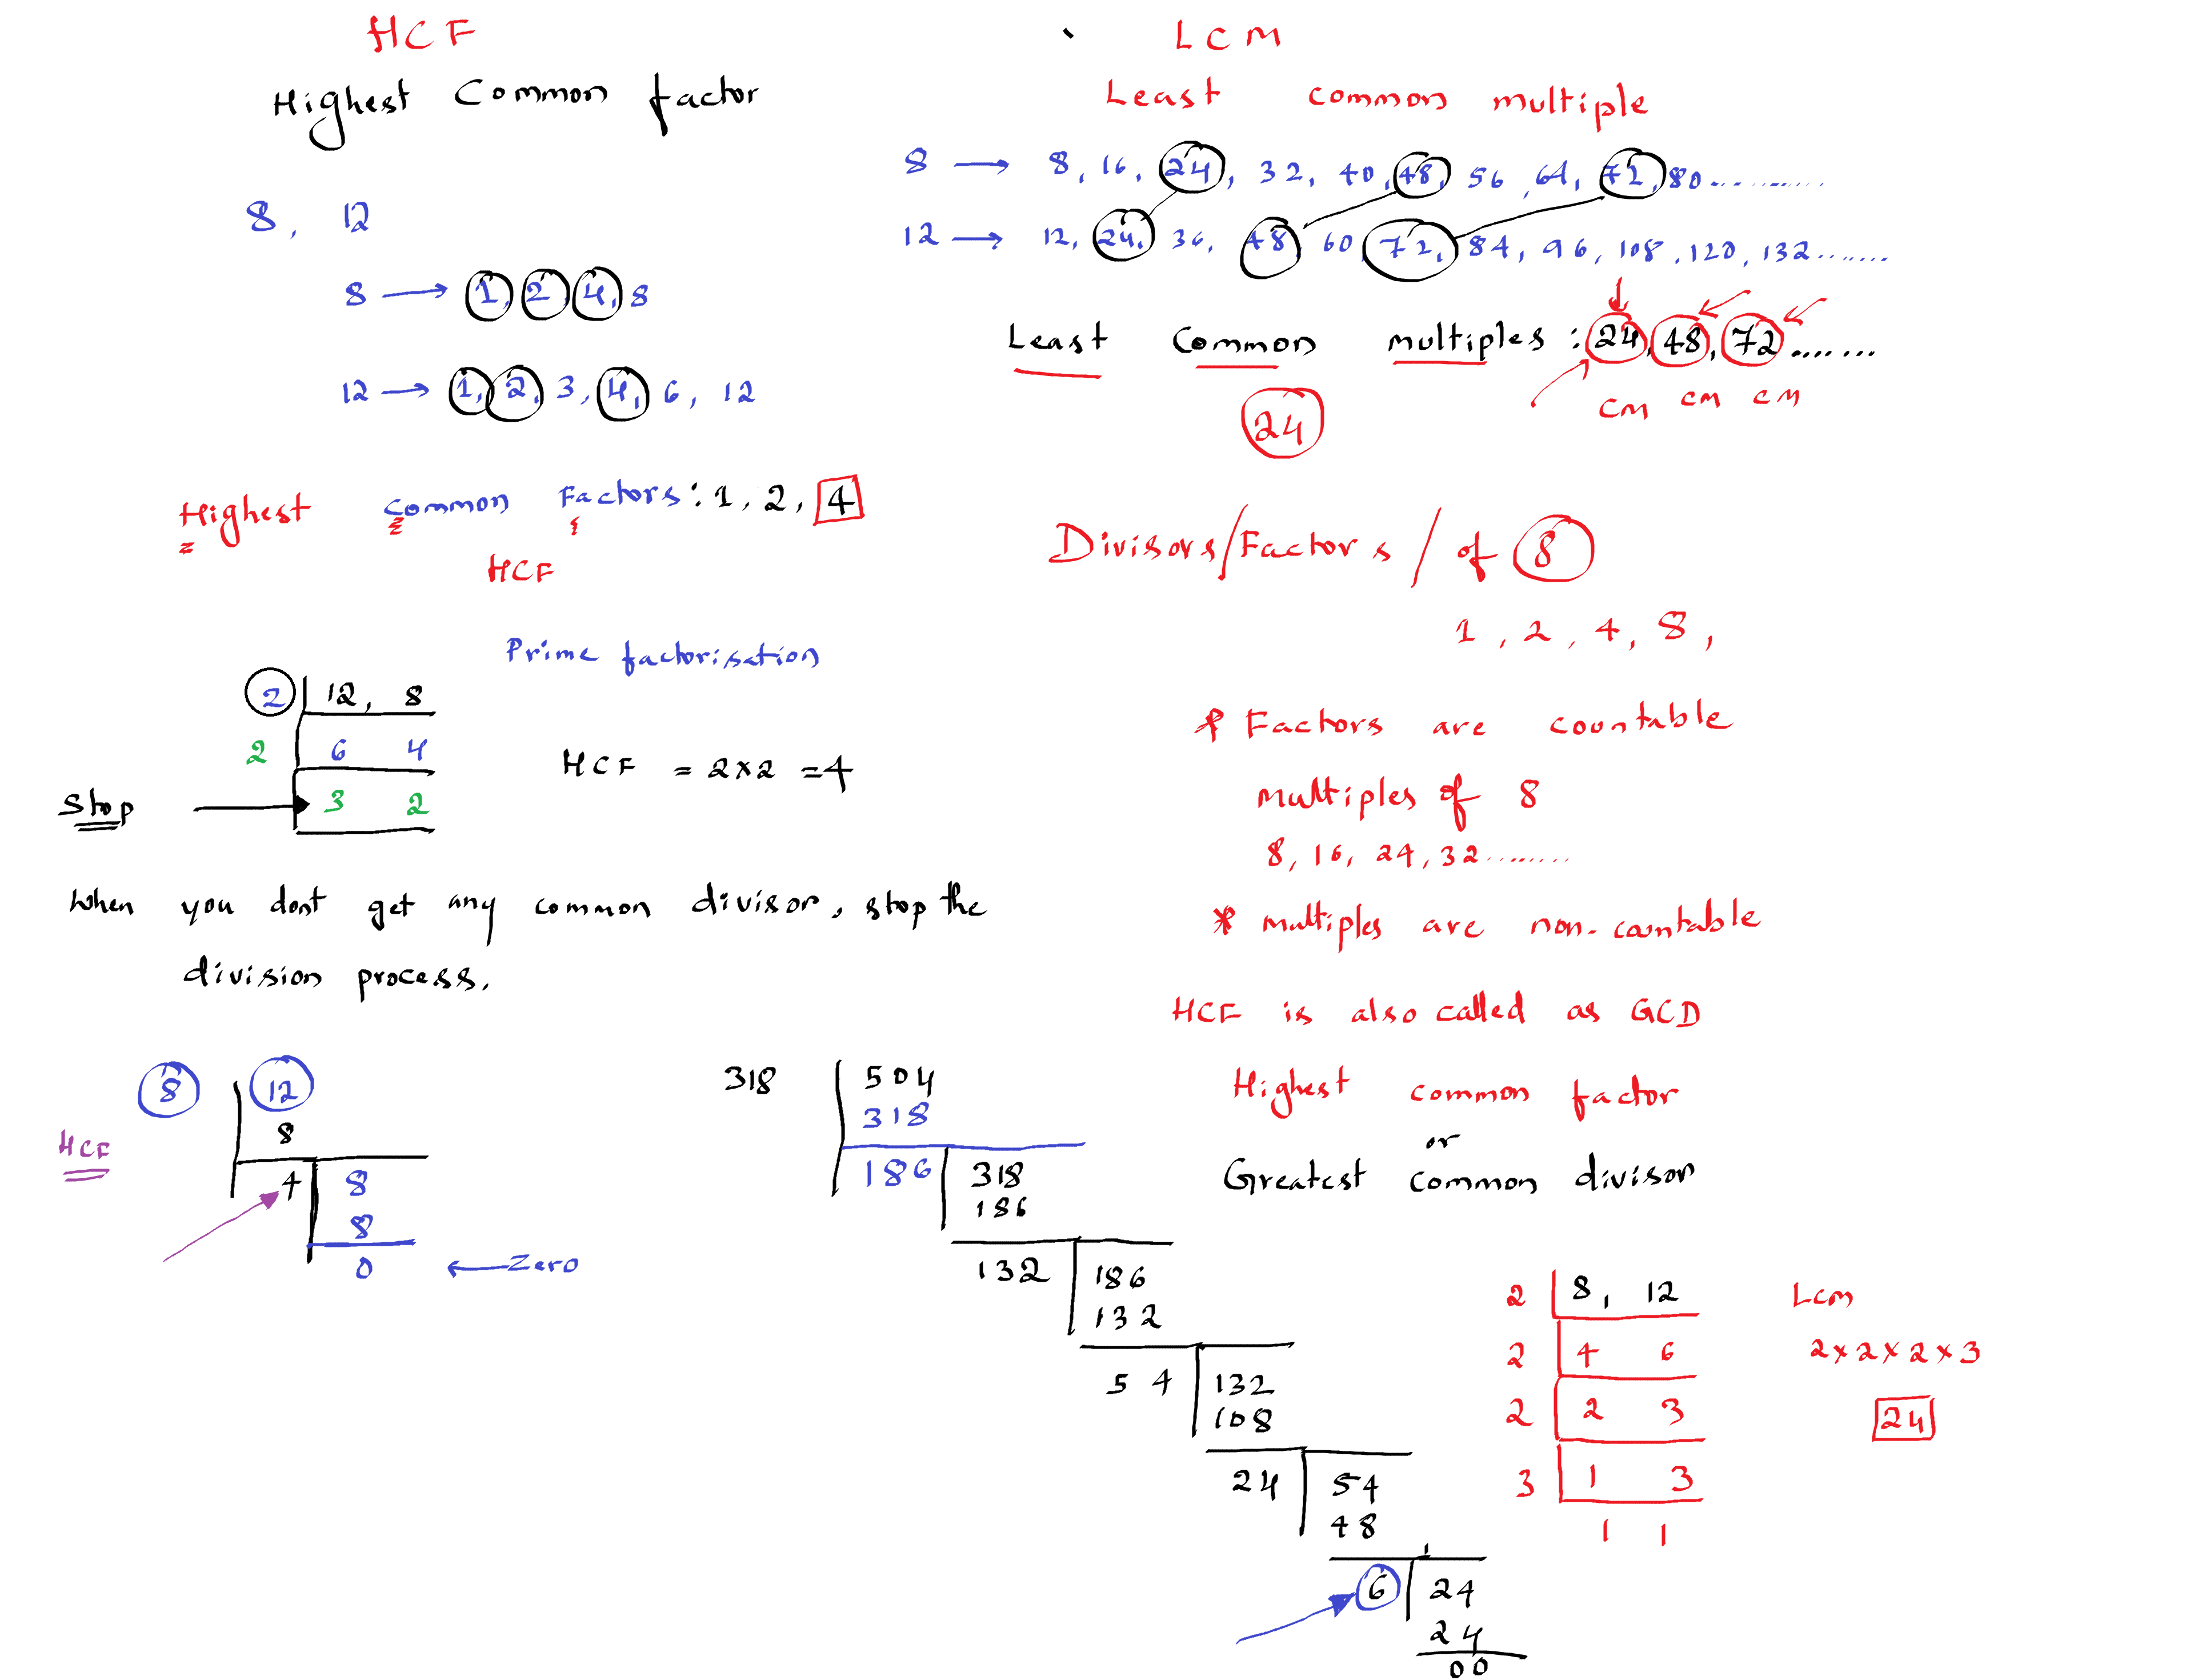 HCF
Highest Common factor
8, 12
8 → 1, 2, 4, 8
12 → 1, 2, 3, 4, 6, 12
Highest Common Factors: 1, 2, 4
HCF
Prime factorisation
2 | 12, 8
2 | 6 4
Stop → 3 2
HCF = 2×2 = 4
When you dont get any common divisor, stop the
division process.
8 | 12
8
HCF
4 | 8
8
0 ← Zero
318 | 504
318
186 | 318
186
132 | 186
132
54 | 132
108
24 | 54
48
6 | 24
24
00
LCM
Least common multiple
8 → 8, 16, 24, 32, 40, 48, 56, 64, 72, 80..........
12 → 12, 24, 36, 48, 60 72, 84, 96, 108, 120, 132.......
Least Common multiples : 24, 48, 72.......
CM CM CM
24
Divisors/Factors / of 8
1, 2, 4, 8,
* Factors are countable
multiples of 8
8, 16, 24, 32.........
* multiples are non-countable
HCF is also called as GCD
Highest common factor
or
Greatest common divisor
2 | 8, 12
2 | 4 6
2 | 2 3
3 | 1 3
1 1
Lcm
2×2×2×3
24